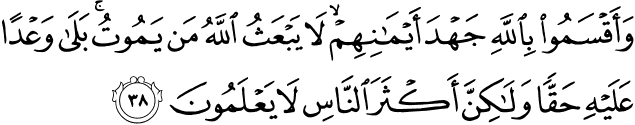 وَأَقْسَمُوا۟ بِٱللَّهِ جَهْدَ أَيْمَـٰنِهِمْ ۙ لَا يَبْعَثُ ٱللَّهُ مَن يَمُوتُ ۚ بَلَىٰ وَعْدًا
عَلَيْهِ حَقًّا وَلَـٰكِنَّ أَكْثَرَ ٱلنَّاسِ لَا يَعْلَمُونَ ٣٨